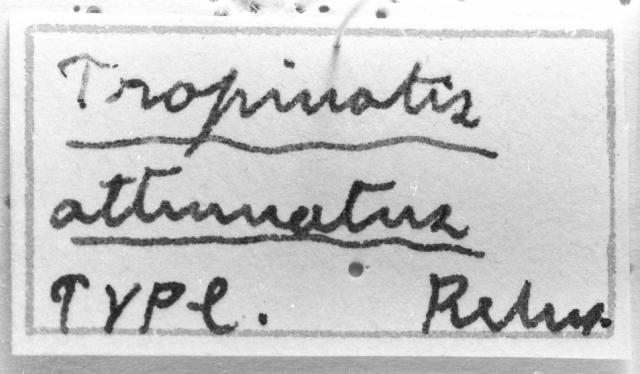 Tropinotus
attenuatus
TYPE. Rehn.